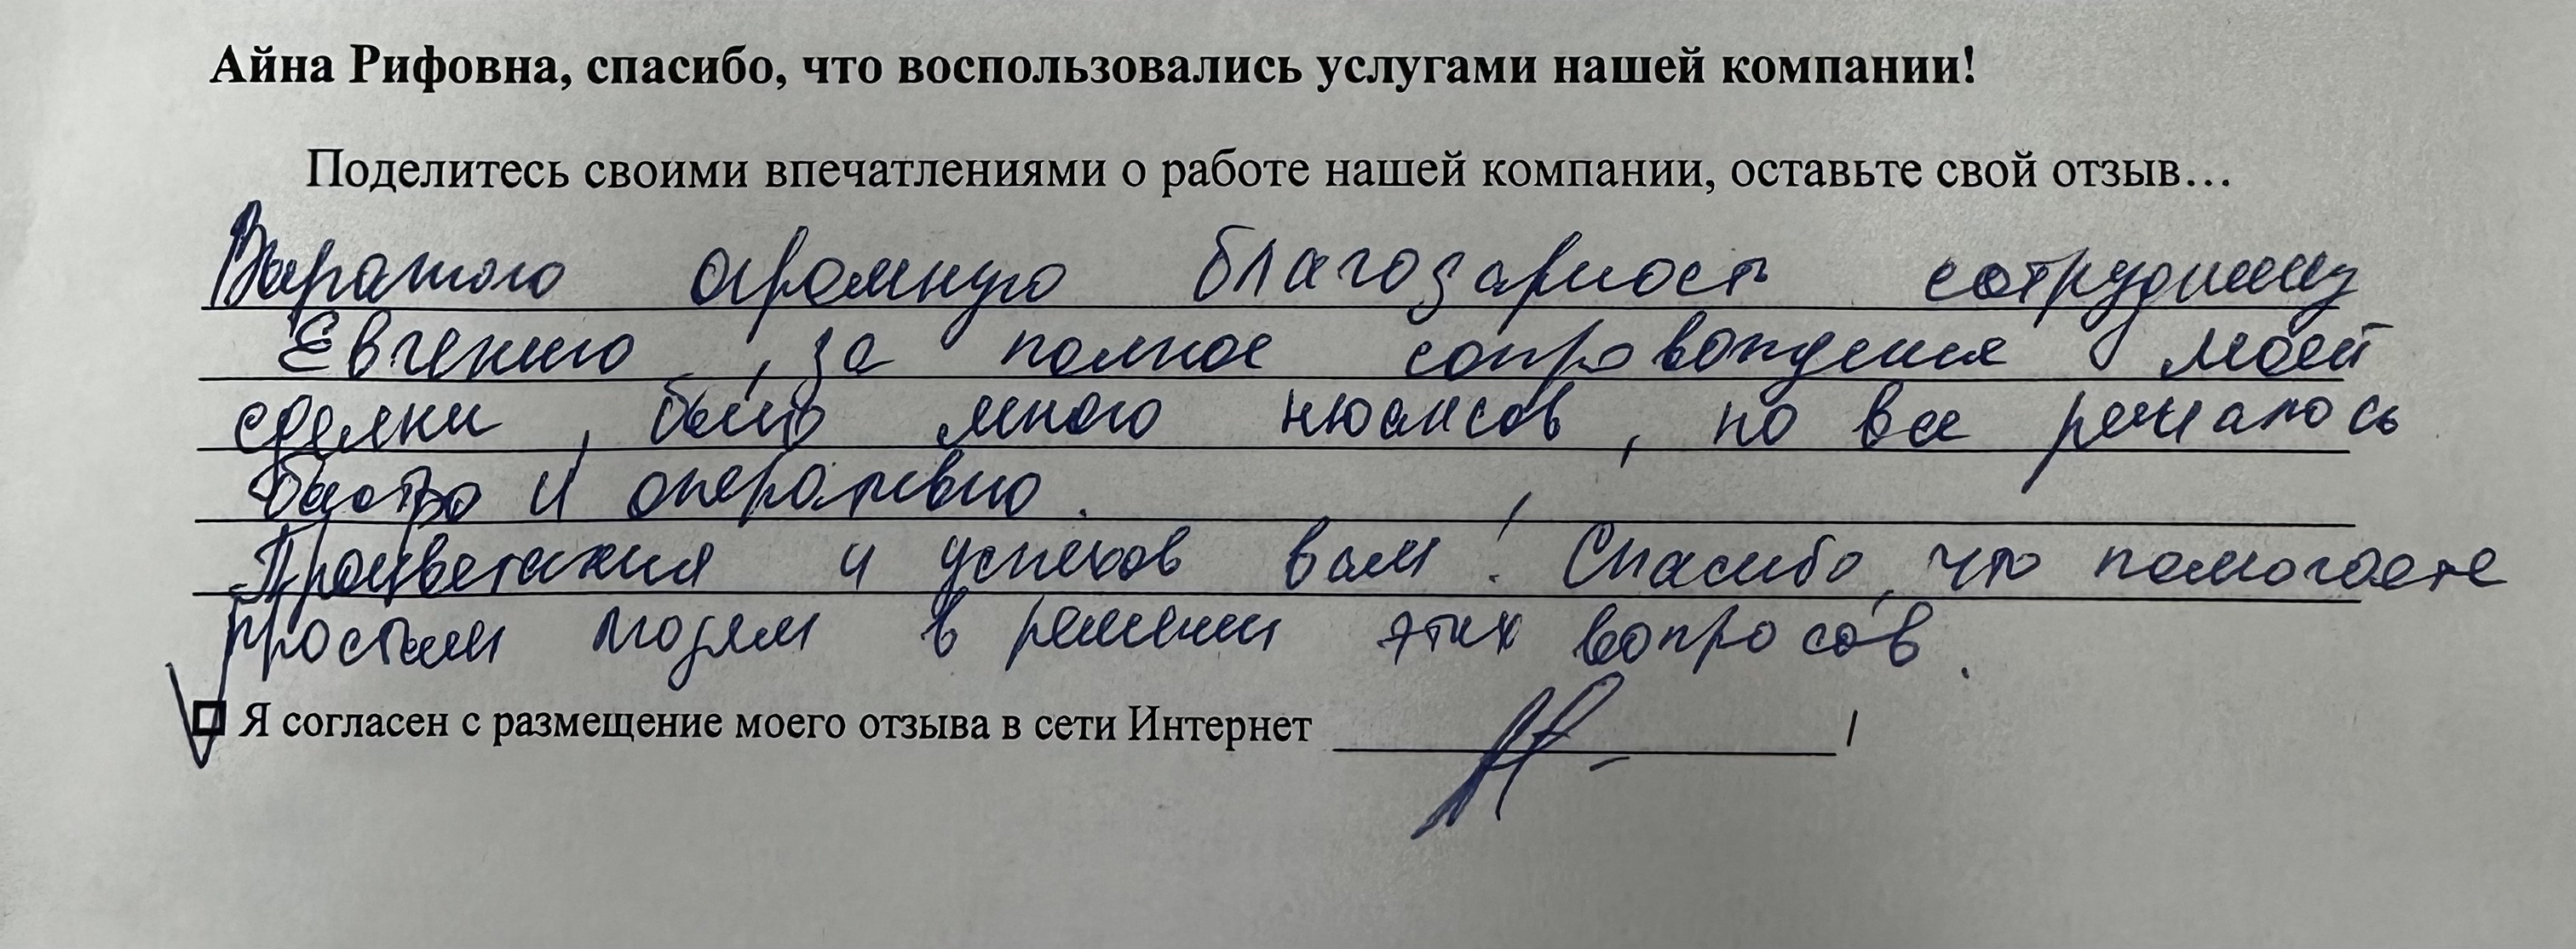 Айна Рифовна, спасибо, что воспользовались услугами нашей компании!
Поделитесь своими впечатлениями о работе нашей компании, оставьте свой отзыв…
Выражаю огромную благодарность сотруднику
Евгению, за полное сопровождение моей
сделки, было много нюансов, но все решалось
быстро и оперативно.
Процветания и успехов вам! Спасибо, что помогаете
простым людям в решении этих вопросов.
Я согласен с размещение моего отзыва в сети Интернет